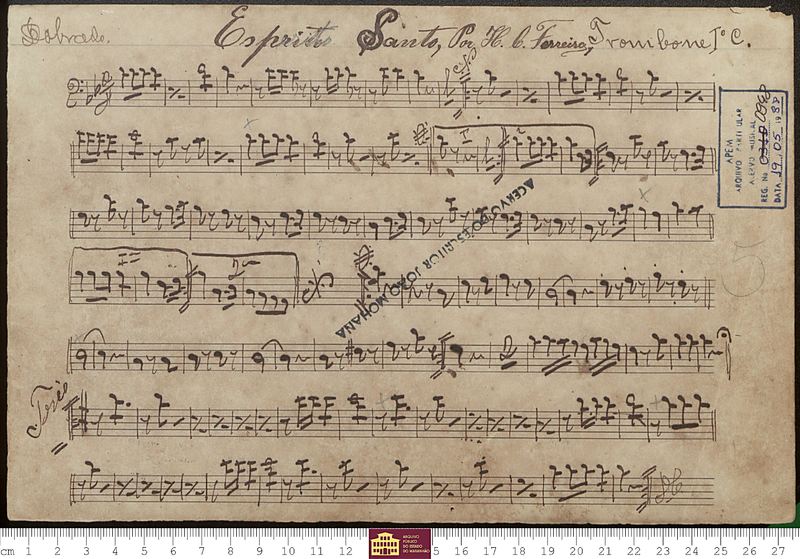 Dobrado. Espirito Santo, Por H. C. Ferreira, Trombone 1º C.
APEM
ARQUIVO PARTICULAR
ACERVO MUSICAL
REG. No
DATA 19.05.1987
ACERVO DO ESCRITOR JOÃO MOHANA
Trio
DC
cm 1 2 3 4 5 6 7 8 9 10 11 12 5 16 17 18 19 20 21 22 23 24 25 26 27
ARQUIVO
PÚBLICO
DO ESTADO
DO MARANHÃO